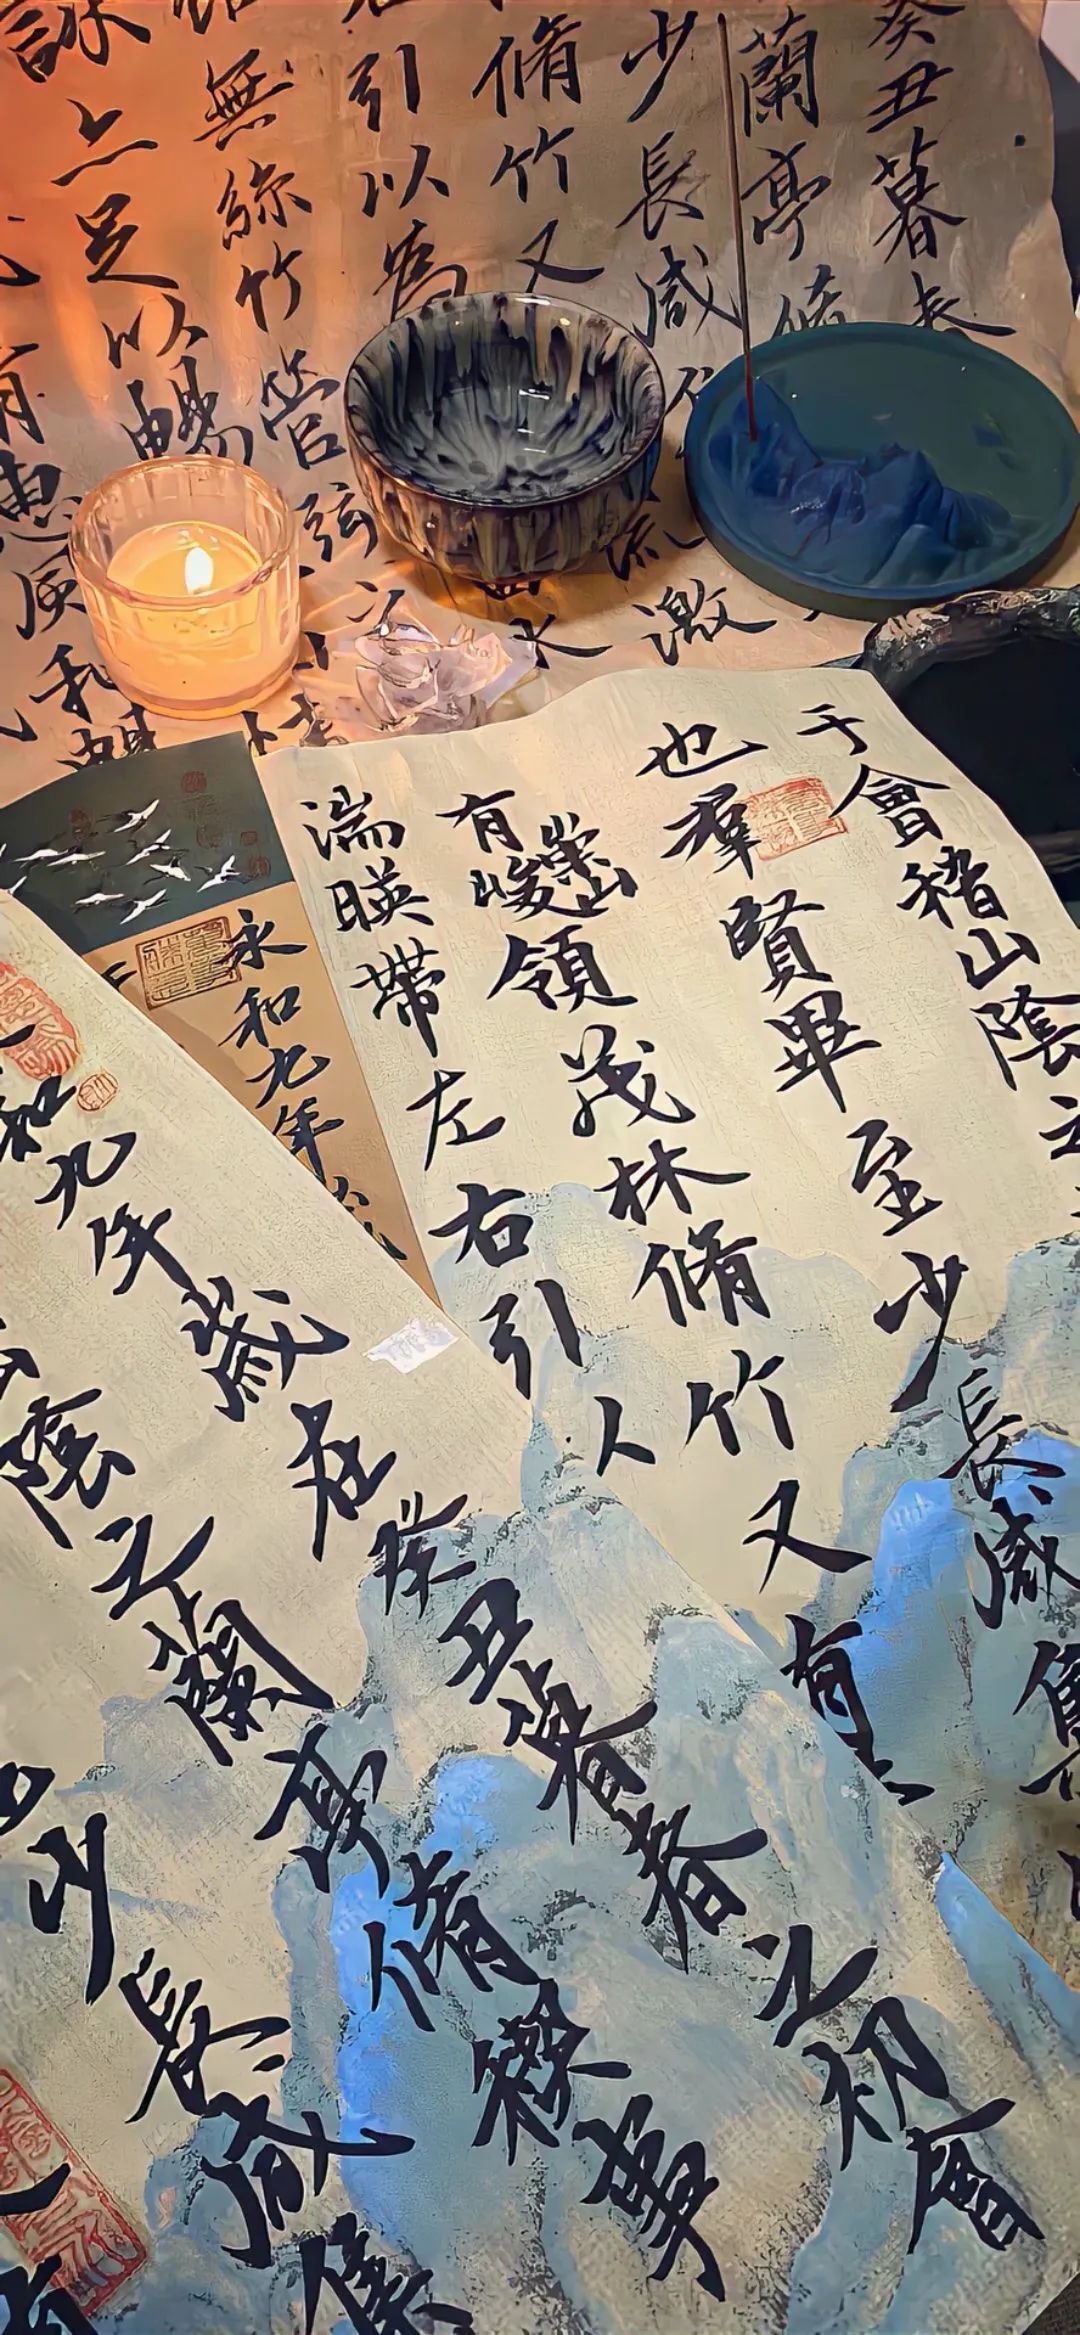 癸丑暮春
蘭亭脩
少長咸
流激
脩竹又
引以為
無絲竹管弦之
詠亦足以暢
有
惠風和暢
于會稽山陰之
也羣賢畢至少長咸集
有崇山峻領茂林脩竹又有
湍暎帶左右引
永和九年歲
和九年歲在癸丑暮春之初會
陰之蘭亭脩禊事
少長咸集